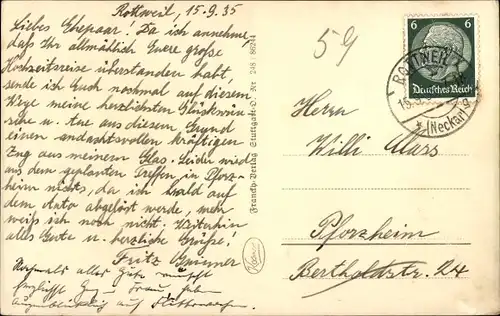 Rottweil, 15.9.35
Liebes Ehepaar! Da ich annehme,
dass Ihr allmählich Euere große
Hochzeitsreise überstanden habt,
sende ich Euch nochmal auf diesem
Wege meine herzlichsten Glückwün-
sche u. tue aus diesem Grund
einen andachtsvollen kräftigen
Zug aus meinem Glas. Leider wird
aus dem geplanten Treffen in Pforz-
heim nichts, da ich bald auf
dem Auto abgelöst werde, mehr
weiß ich noch nicht. Weiterhin
alles Gute u. herzliche Grüße!
Fritz
Nochmals alles Gute wünscht
Frau
augenblicklich auf Flitterwochen.
Franckh-Verlag Stuttgart-O. Nr.
59
6 6
Deutsches Reich
ROTTWEIL
(Neckar)
Herrn
Willi
Pforzheim
Bertholdstr. 24